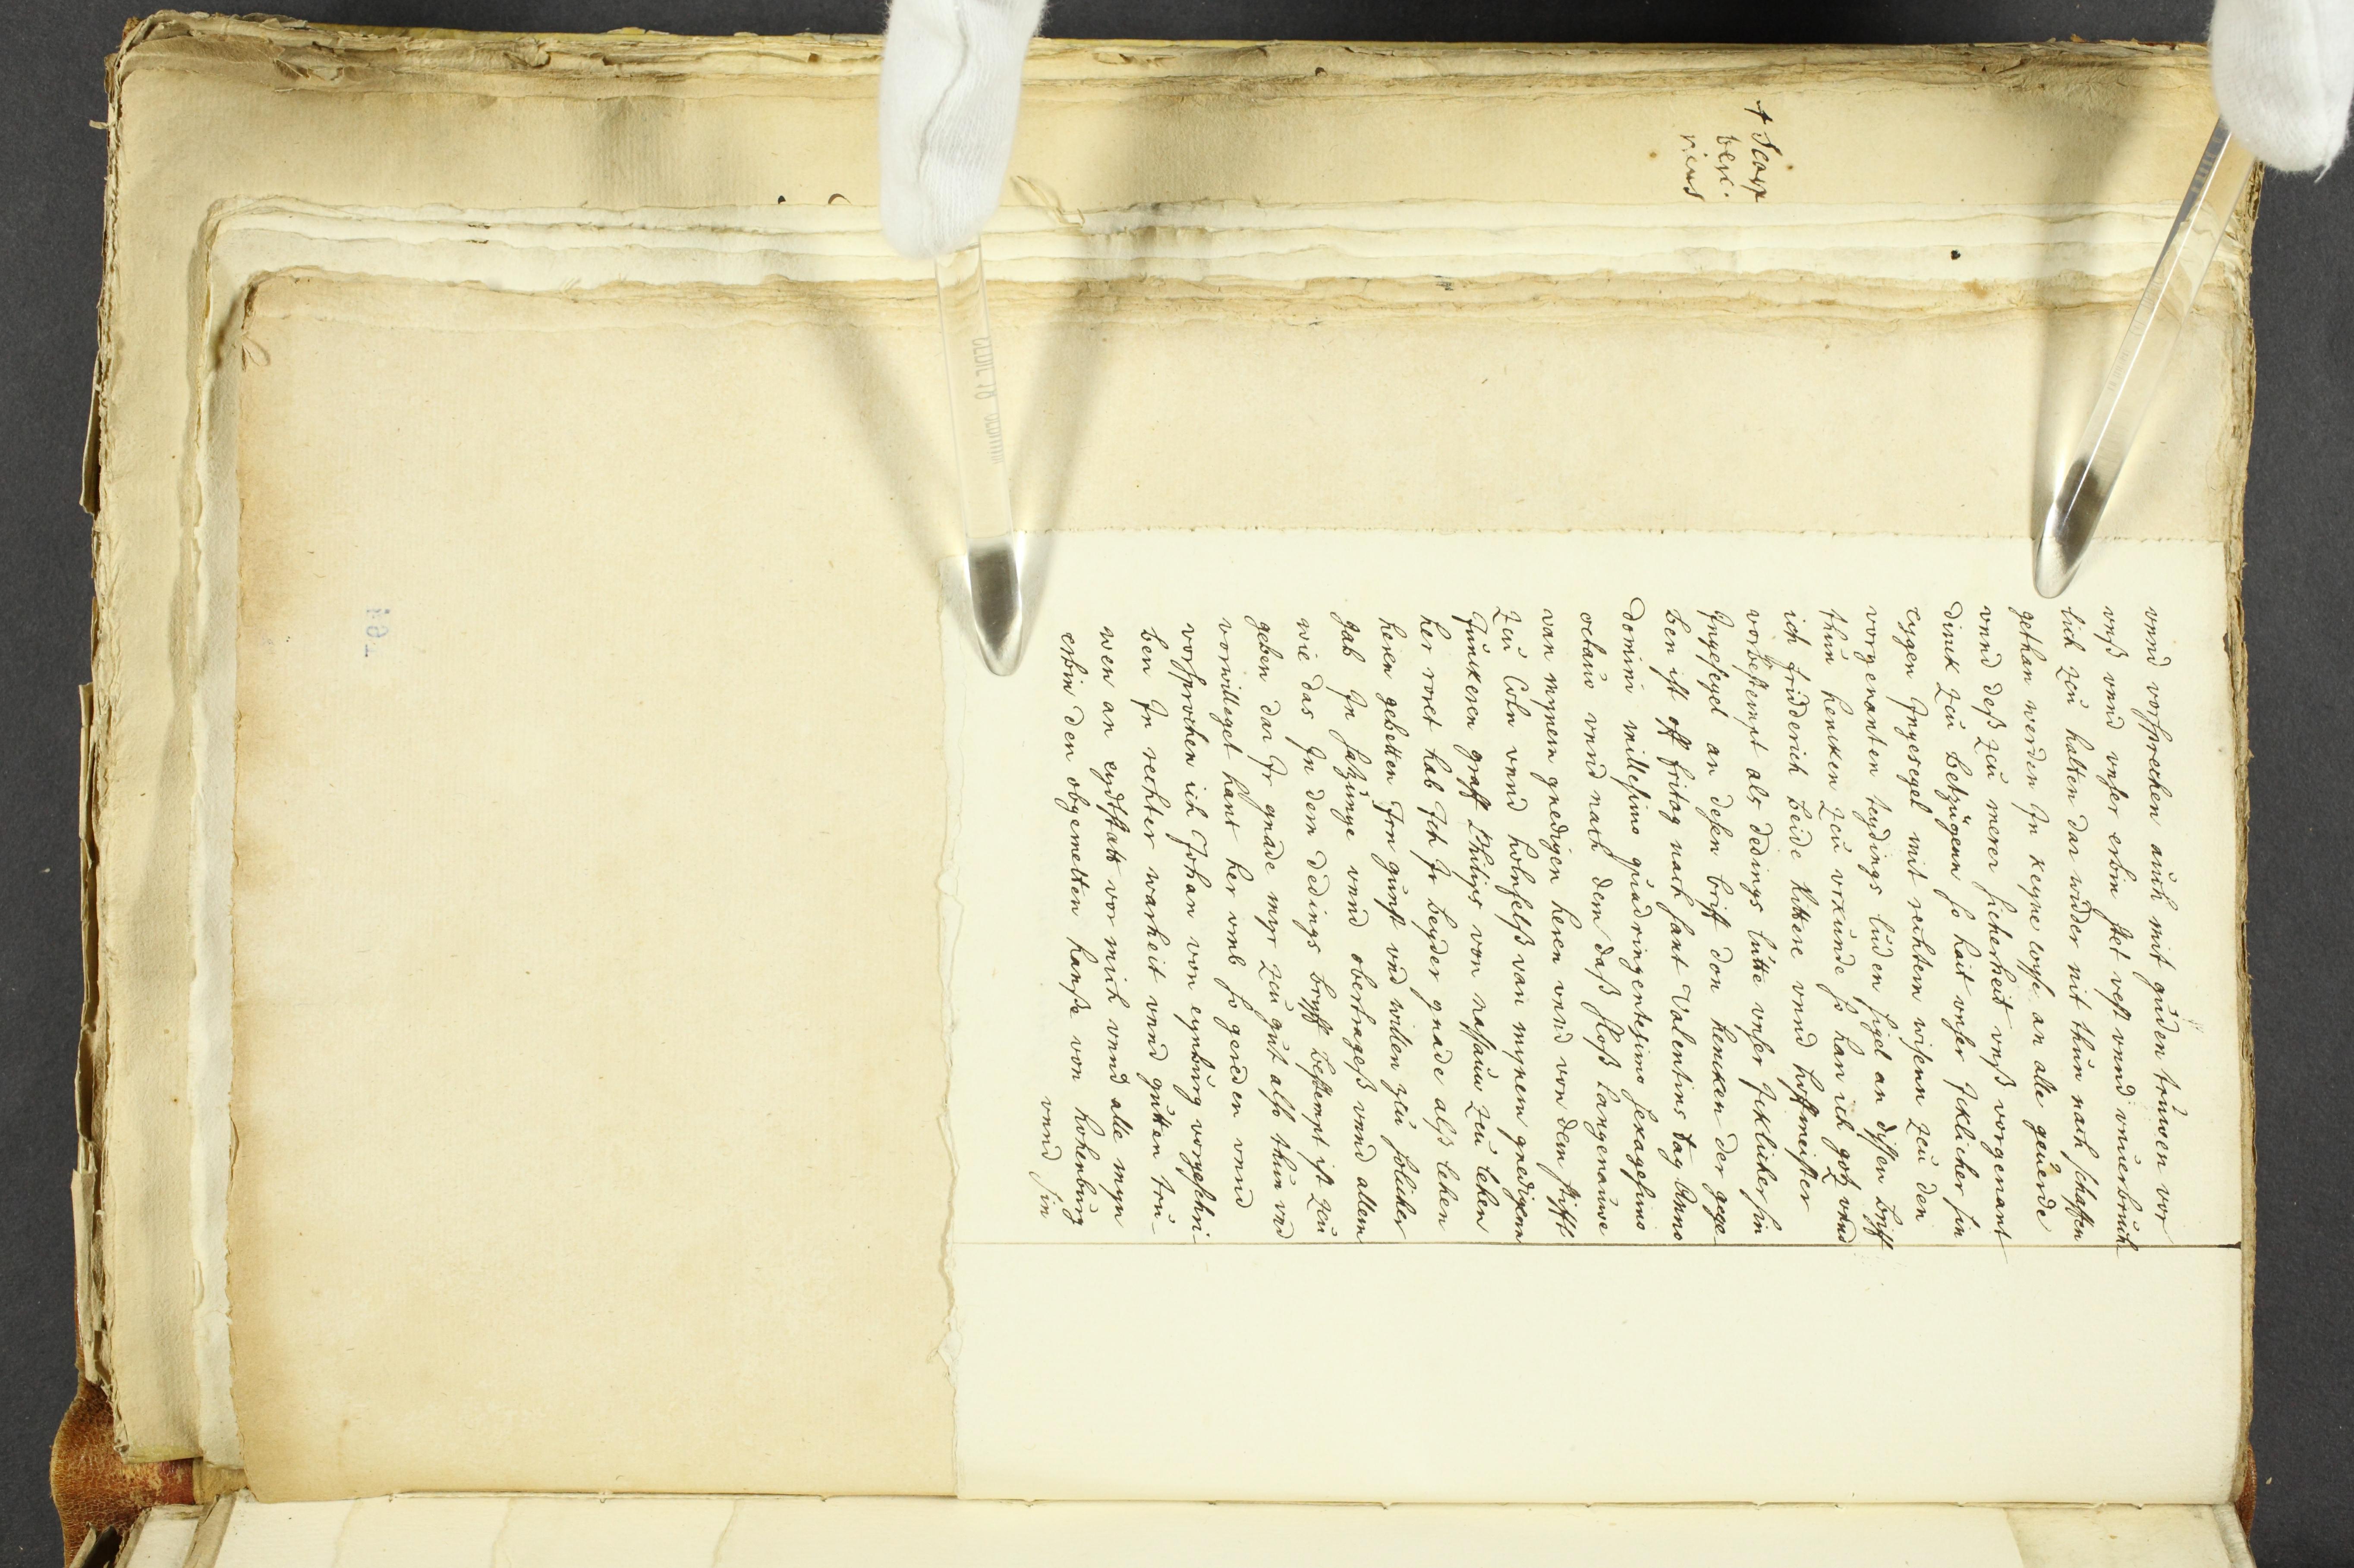 vnnd vorsprechen auch mit guden truwen vor
vnß vnnd vnser erbin stet vest vnnd vnuerbruch
lich zcu halten dar widder nit thun nach schaffen
gethan werden In keyne wyse an alle geuerde
vnnd deß zcu merer sicherheit vnß vorgenant
dinck zcu betzugenn so hait vnser Icklicher sin
eygen Ingesegel mit rechtem wisenn zcu den
vorgenanten teydings luden sigel an dissen briff
thun hencken zcu vrkunde so han ich gotz vnnd
ich fridderich beide Rittere vnnd hoffmeister
vorbestempt als dedings lutte vnser Icklicher sin
Ingesegel an desen briff don hencken der gege-
ben ist off fritag nach sant Valentins tag Anno
domini millesimo quadringentesimo sexagesimo
octauo vnnd nach dem daß sloß Langenauwe
van mynem gnedigen heren vnnd von dem stifft
zcu Coln vnnd holnfelß van mynem gnedigenn
Junckeren graff Philips von nassauw zcu lehen
her roret hab Ich Ir beyder gnade alß lehen
heren gebetten Irn gunst vnd willen zcu solicher
gab In satzunge vnnd obertrageß vnnd allem
wie das In dem dedings bryff bestempt ist zcu
geben dar Ir gnade myr zcu gut also thun vnd
vorwilleget hant her vmb so gereden vnnd
vorsprechen ich Johan von eynburg vorgeschri-
ben In rechter warheit vnnd gutten tru-
wen an eydstatt vor mich vnnd alle myn
erbin den obgemelten hanße von hohenburg
vnnd sin